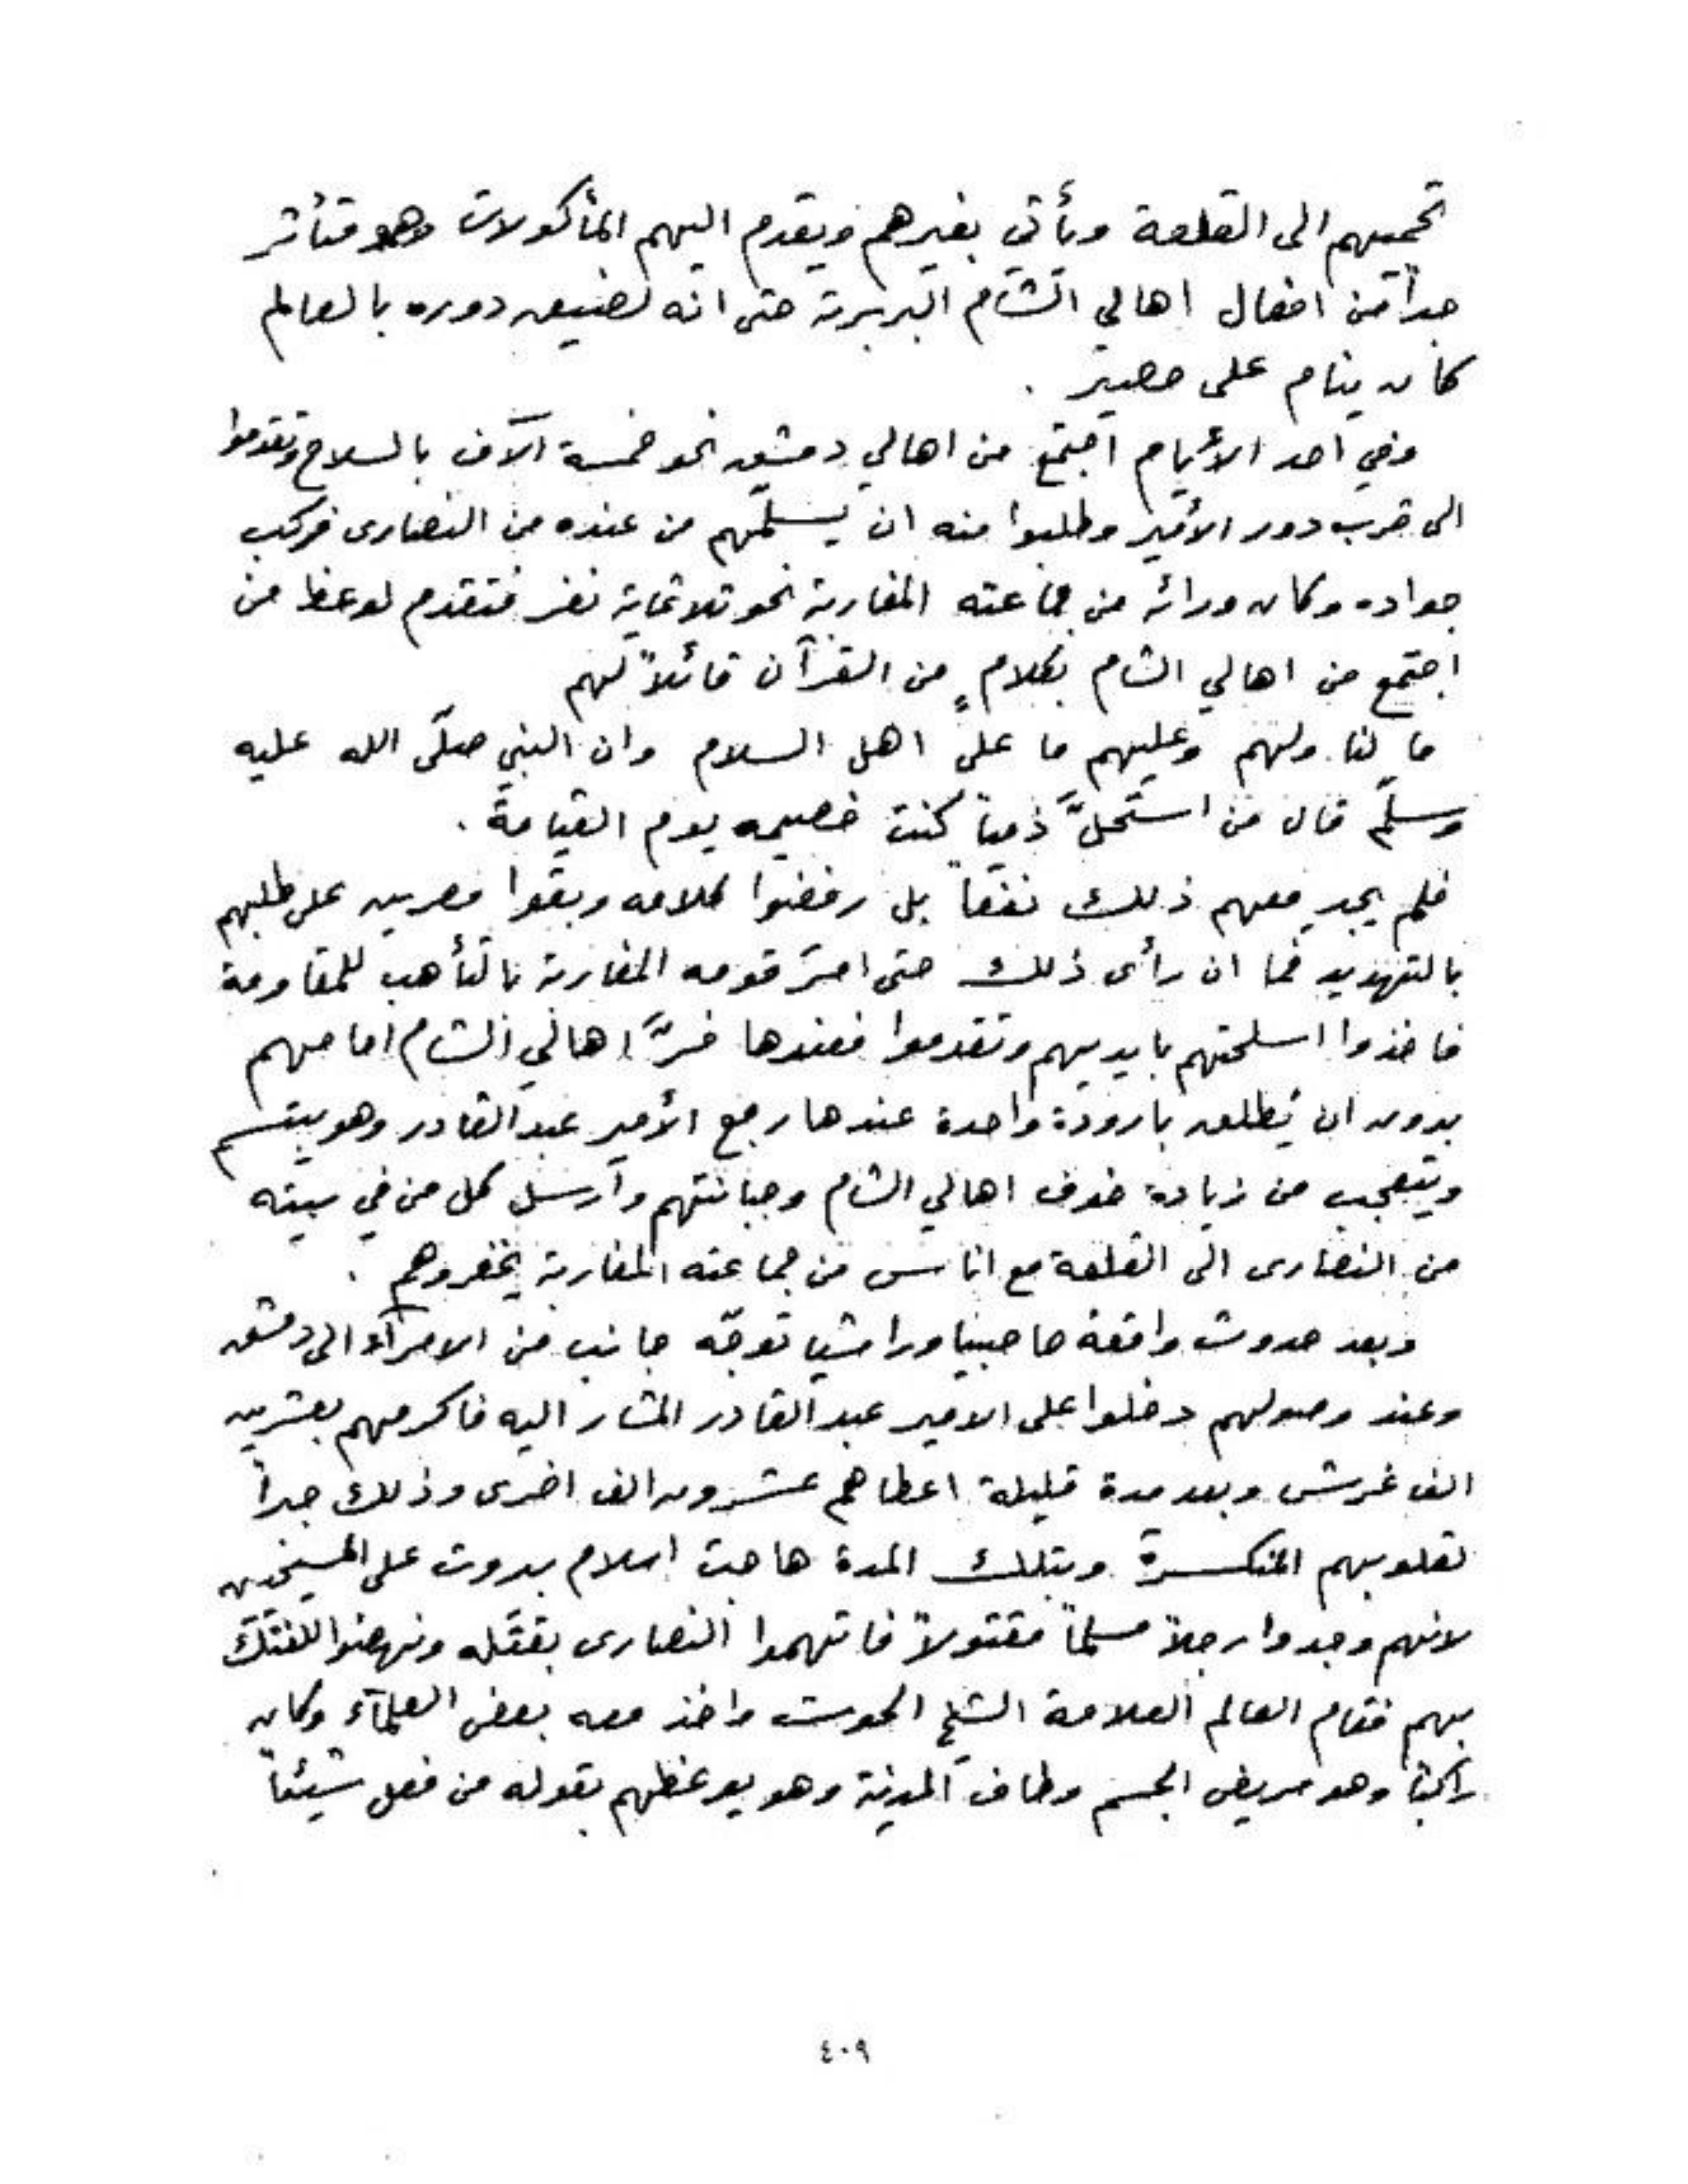 تحميهم الى القلعة ويأتي بغيرهم ويقدم اليهم المأكولات وهو متأثر
جداً من افعال اهالي الشام البربرية حتى انه لضيق دوره بالعالم
كان ينام على حصير .
وفي احد الأيام اجتمع من اهالي دمشق نحو خمسة آلاف بالسلاح وتقدموا
الى قرب دور الأمير وطلبوا منه ان يسلّمهم من عنده من النصارى فركب
جواده وكان ورائه من جماعته المغاربة نحو ثلاثماية نفر فتقدم لوعظ من
اجتمع من اهالي الشام بكلامٍ من القرآن قائلاً لهم
ما لنا ولهم وعليهم ما على اهل السلام وان النبي صلّى الله عليه
وسلّم قال من استحلَّ ذمياً كنت خصيمه يوم القيامة .
فلم يجدِ معهم ذلك نفعاً بل رفضوا كلامه وبقوا مصرين على طلبهم
بالتهديد فما ان رأى ذلك حتى امر قومه المغاربة بالتأهب للمقاومة
فاخذوا اسلحتهم بايديهم وتقدموا فعندها فرَّ اهالي الشام امامهم
بدون ان يُطلق بارودة واحدة عندها رجع الأمير عبد القادر وهو يبتسم
ويتعجب من زيادة خوف اهالي الشام وجبانتهم وارسل كل من في بيته
من النصارى الى القلعة مع اناس من جماعته المغاربة يخفروهم .
وبعد حدوث واقعة حاصبيا وراشيا توجّه جانب من الامرآء الى دمشق
وعند وصولهم دخلوا على الامير عبد القادر المشار اليه فاكرمهم بعشرين
الف غرش وبعد مدة قليلة اعطاهم عشرون الف اخرى وذلك جبراً
لقلوبهم المنكسرة وبتلك المدة هاجت اسلام بيروت على المسيحيين
لانهم وجدوا رجلاً مسلماً مقتولاً فاتهموا النصارى بقتله ونهضوا للفتك
بهم فقام العالم العلامة الشيخ الحوت واخذ معه بعض العلمآء وكان
راكباً وهو مريض الجسم وطاف المدينة وهو يوعظهم بقوله من فعل شيئاً
٤٠٩